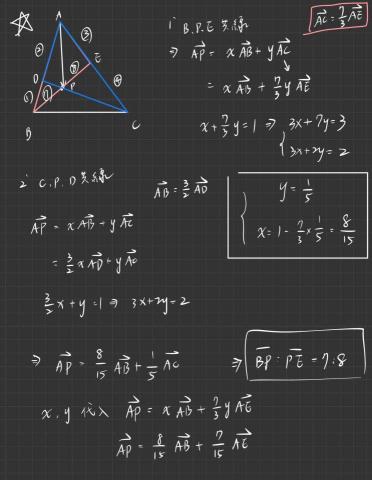 A
③
②
E
④
D
⑧
P
①
⑦
B
C
1° B.P.E 共線
AC = 7/3 AE
⇒ AP = xAB + yAC
= xAB + 7/3 yAE
x + 7/3 y = 1 ⇒ 3x + 7y = 3
3x + 2y = 2
2° C.P.D 共線
AB = 3/2 AD
y = 1/5
x = 1 - 7/3 × 1/5 = 8/15
AP = xAB + yAC
= 3/2 xAD + yAC
3/2 x + y = 1 ⇒ 3x + 2y = 2
⇒ AP = 8/15 AB + 1/5 AC
⇒ BP : PE = 7 : 8
x, y 代入 AP = xAB + 7/3 yAE
AP = 8/15 AB + 7/15 AE